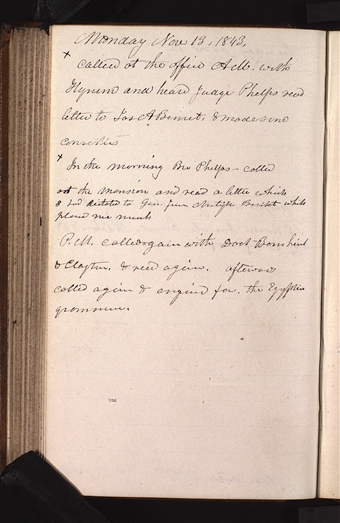 Monday Nov 13, 1843,
x called at the office A M. with
Hyrum and heard Judge Phelps read
letter to Jas A Bennet, & made some
corrections
x In the morning Bro Phelps - called
at the mansion and read a letter which
I had dictated to Gen. Arlington Bennet which
pleased me much
P.M. called again with Doct Bernhisel
& Clayton. & read again. afterwards
called again & enquired for. the Egyptian
grammar.